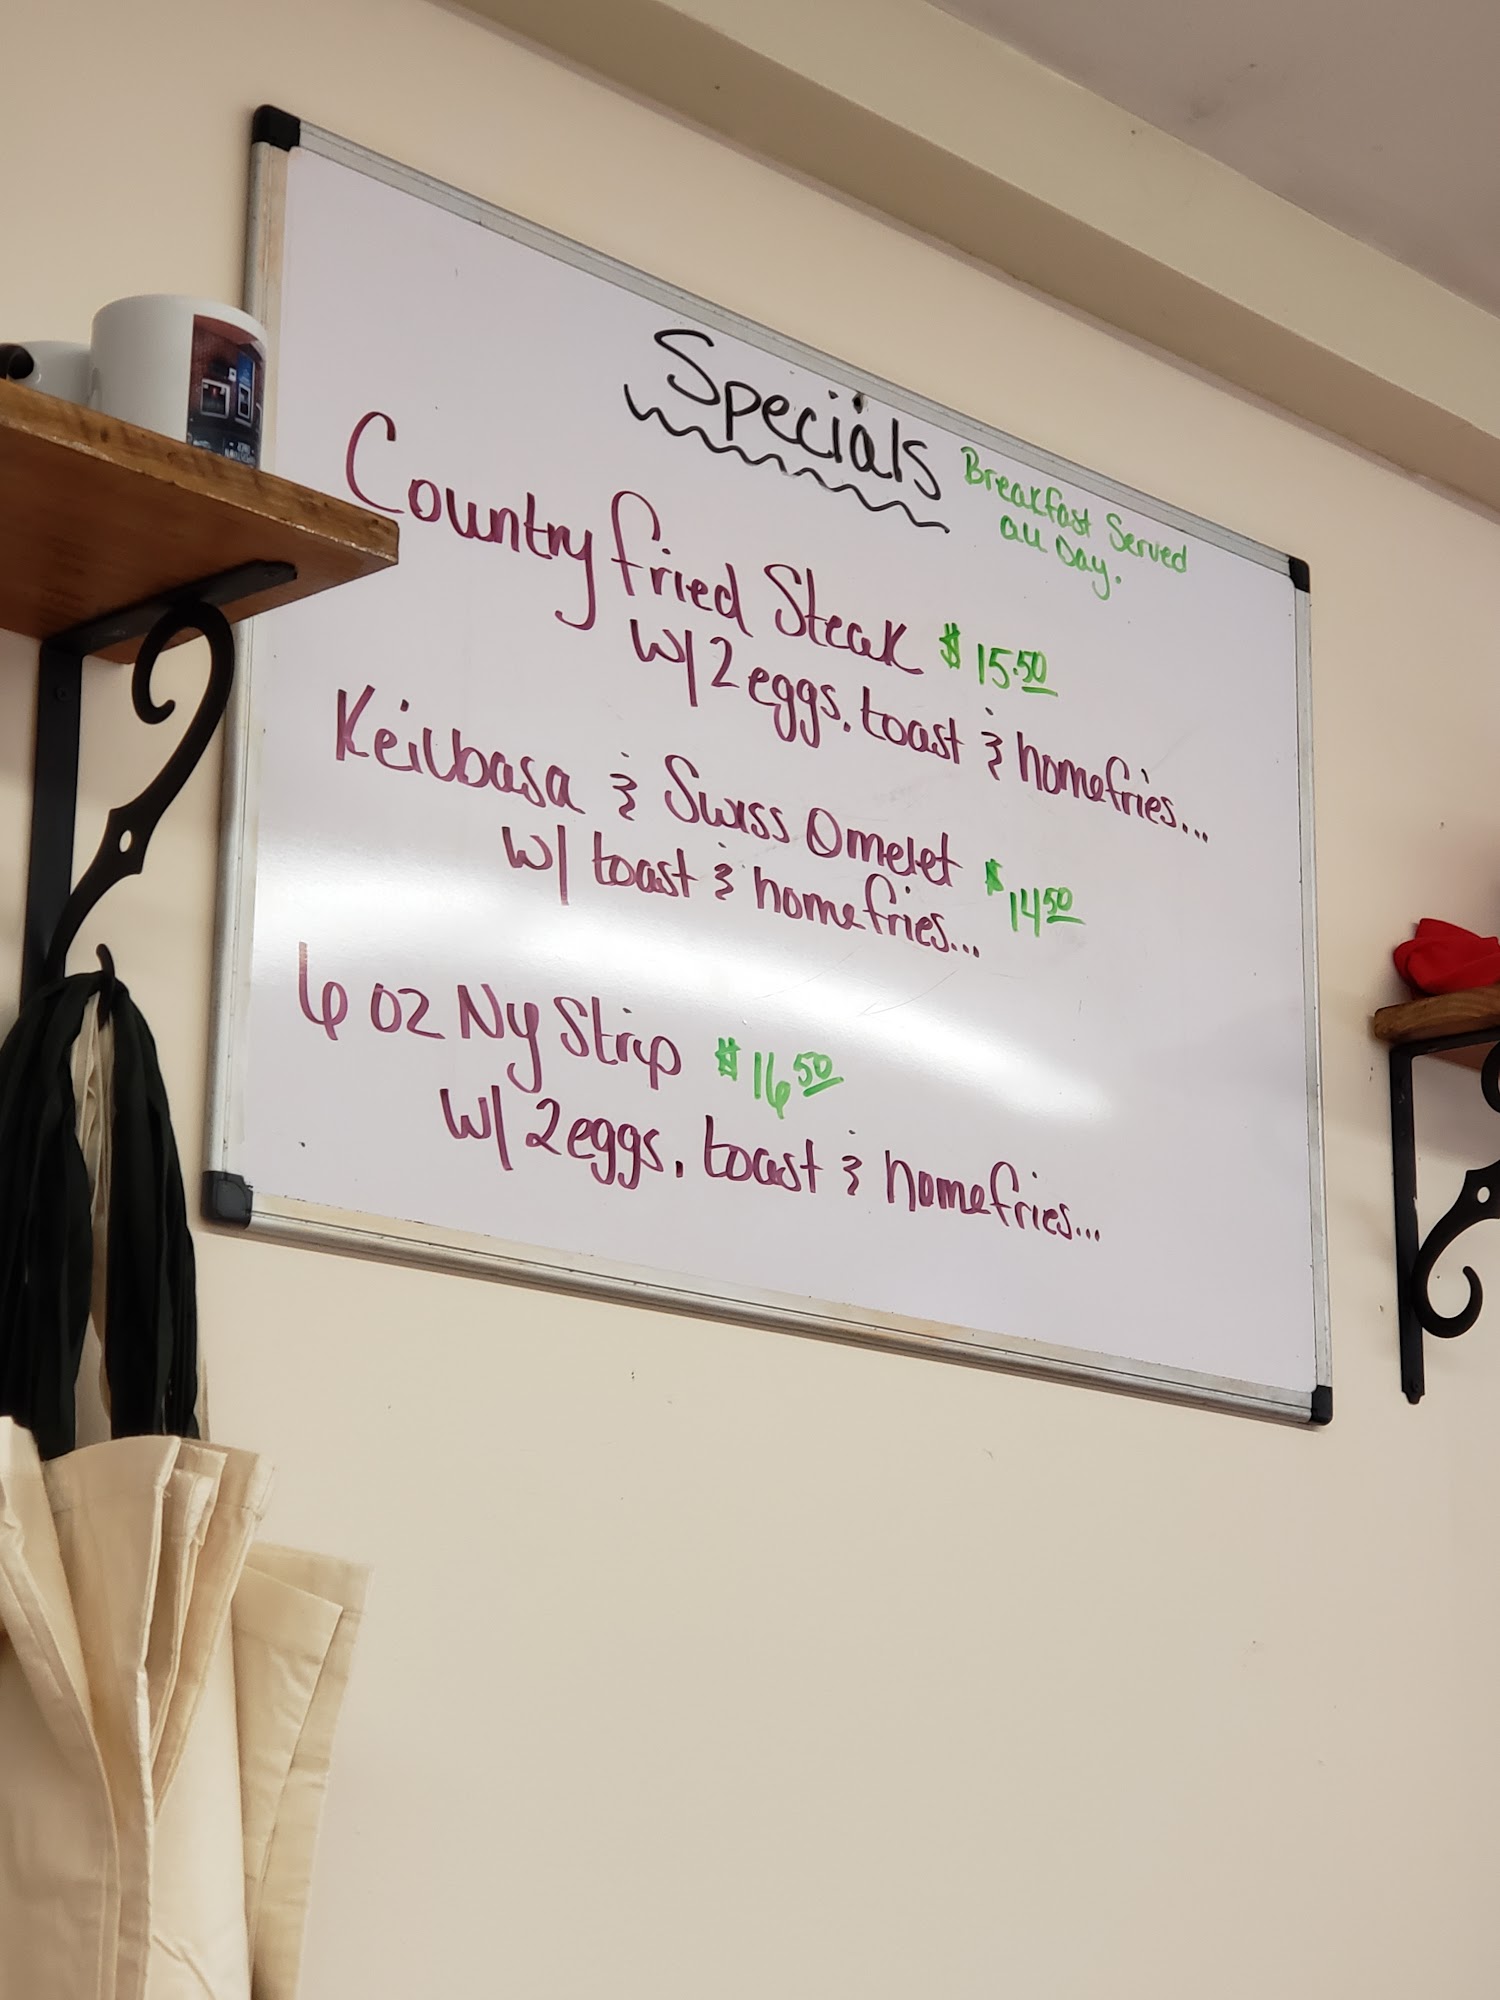 Specials
Breakfast Served
all Day.
Country fried Steak $15.50
w/ 2 eggs, toast & homefries...
Keilbasa & Swiss Omelet $14.50
w/ toast & homefries...
6 oz Ny Strip $16.50
w/ 2 eggs, toast & homefries...